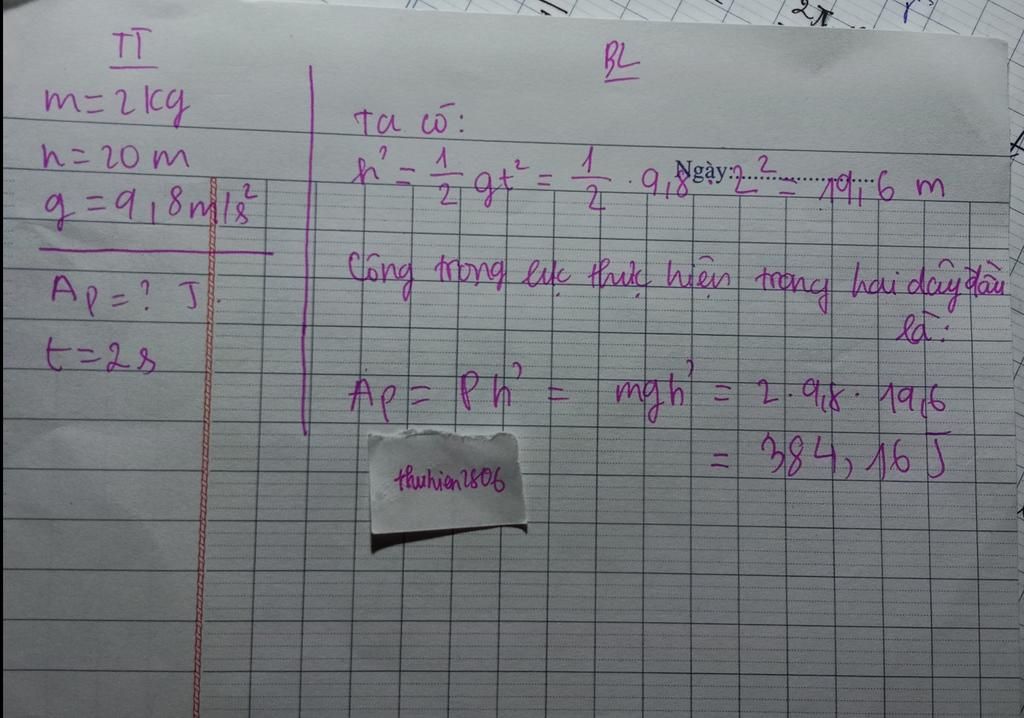 2π
TT
m = 2 kg
h = 20 m
g = 9,8 m/s²
Ap = ? J.
t = 2s
BL
Ta có:
h' = 1/2 gt² = 1/2 . 9,8 . 2² = 19,6 m
Ngày:
Công trong lực thực hiện trong hai dây đầu
là:
Ap = Ph' = mgh' = 2.9,8.19,6
= 384,16 J
thuhien2806